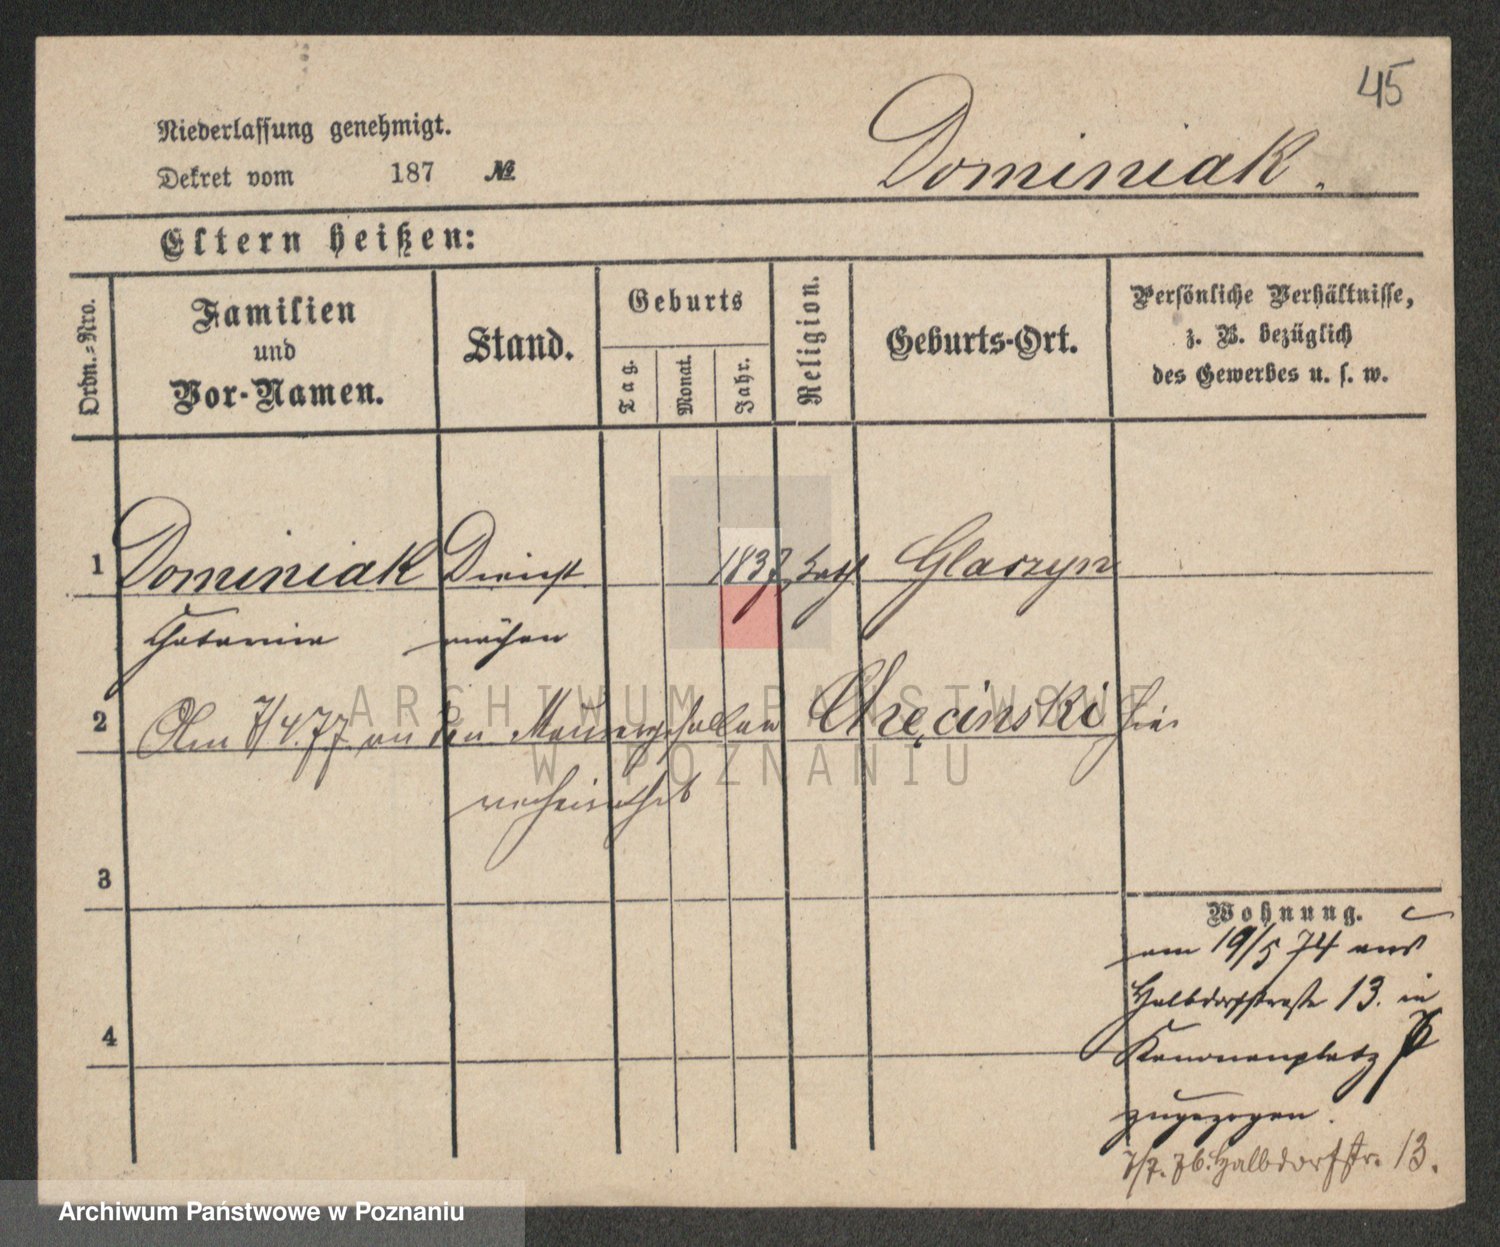 45
Niederlassung genehmigt.
Dekret vom 187 №
Dominiak.
Eltern heißen:
Ordn.-Nro.
Familien
und
Vor-Namen.
Stand.
Geburts
Tag.
Monat.
Jahr.
Religion.
Geburts-Ort.
Persönliche Verhältnisse,
z. B. bezüglich
des Gewerbes u. s. w.
1 Dominiak Dienst 1837 kath Glaszyn
Catarina mädchen
2 Am 7/4.77 an den Maurergesellen Chęcinski hier
verheirathet
3
Wohnung.
am 19/5 74 aus
Halbdorfstraße 13. in
4
Kanonenplatz
zugezogen.
7/7. 76. Halbdorfstr. 13.
ARCHIWUM PAŃSTWOWE
W POZNANIU
Archiwum Państwowe w Poznaniu